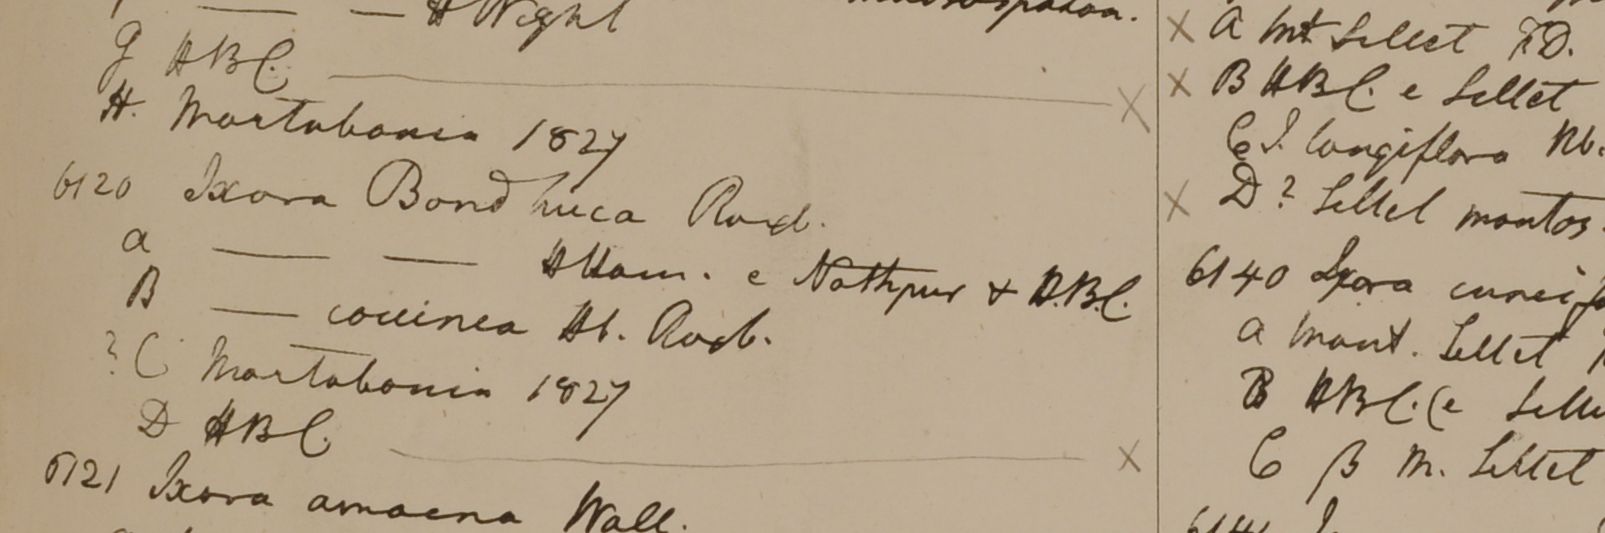 H Wight
G HBC.
H. Martabania 1827
6120 Ixora Bandhuca Roxb.
a — — HHam. e Nathpur & H.B.C.
B — coccinea Hb. Roxb.
? C Martabania 1827
D HBC.
6121 Ixora amoena Wall.
X A Mt Sillet F.D.
X B HBC. e Sillet
C I. longiflora Rb.
X D? Sillet montos
6140 Ixora cuneif
a mont. Sillet
B HBC. (e Sille
C β M. Sillet
6141